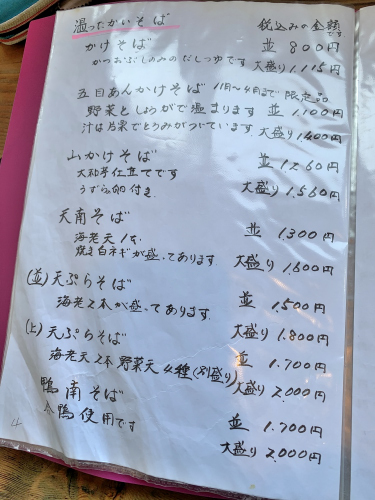 温ったかいそば 税込みの金額です
かけそば 並 800円
かつおぶしのみのだしつゆです 大盛り 1,115円
五目あんかけそば 11月〜4月まで 限定品
野菜としょうがで温まります 並 1,100円
汁は片栗でとろみがついています 大盛り 1,400円
山かけそば 並 1,260円
大和芋仕立てです 大盛り 1,560円
うずら卵付き
天南そば 並 1,300円
海老天1本
焼き白ネギが盛ってあります 大盛り 1,600円
(並)天ぷらそば 並 1,500円
海老2本が盛ってあります 大盛り 1,800円
(上)天ぷらそば 並 1,700円
海老天2本野菜天4種(別盛り) 大盛り 2,000円
鴨南そば 並 1,700円
合鴨使用です 大盛り 2,000円
4